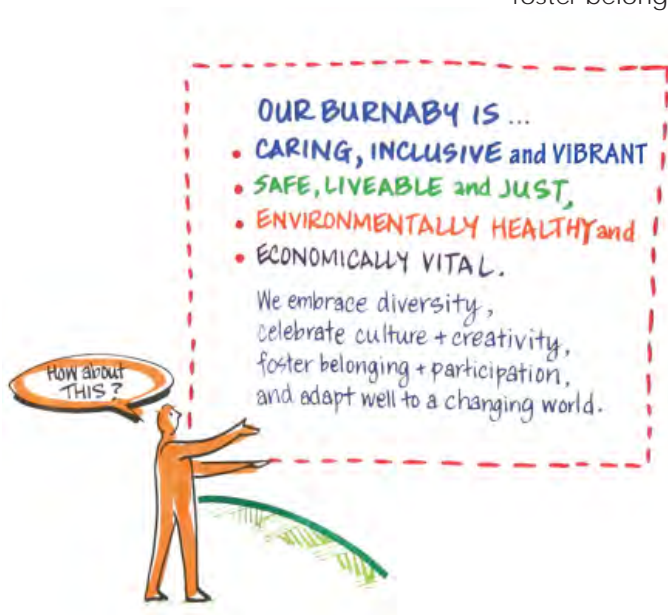 foster belong
OUR BURNABY IS ...
• CARING, INCLUSIVE and VIBRANT
• SAFE, LIVEABLE and JUST,
• ENVIRONMENTALLY HEALTHY and
• ECONOMICALLY VITAL.
We embrace diversity,
celebrate culture + creativity,
foster belonging + participation,
and adapt well to a changing world.
How about
THIS?